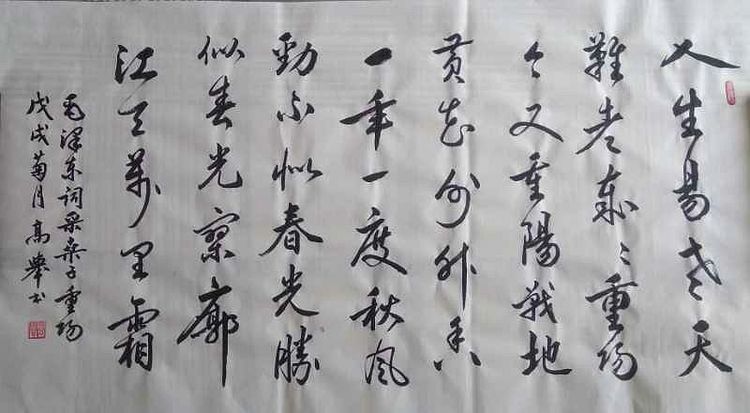 人生易老天
難老歲々重阳
今又重陽戰地
黄花分外香
一年一度秋风
勁不似春光勝
似春光寥廓
江天萬里霜
毛泽东词采桑子重阳
戊戌菊月高举书